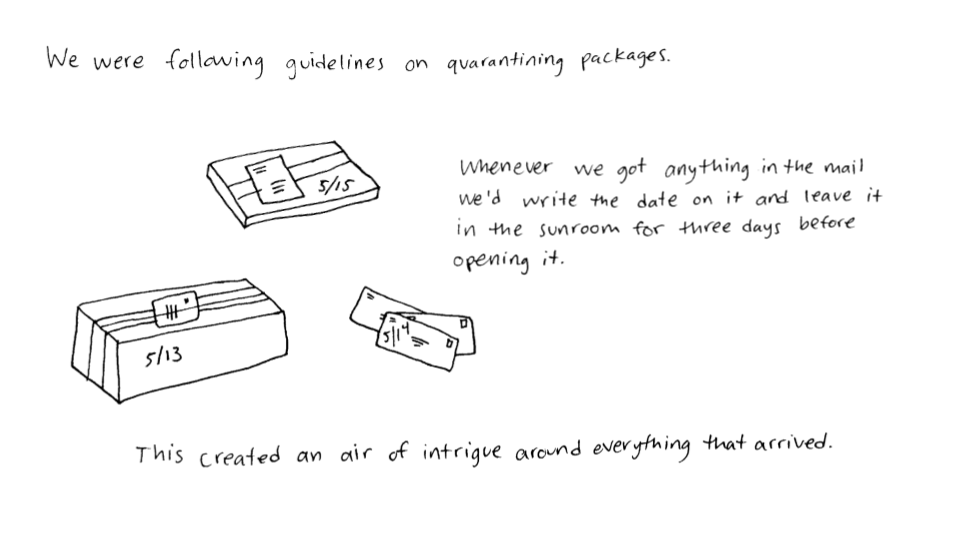 We were following guidelines on quarantining packages.
5/15
Whenever we got anything in the mail
we'd write the date on it and leave it
in the sunroom for three days before
opening it.
5/13
5/14
This created an air of intrigue around everything that arrived.